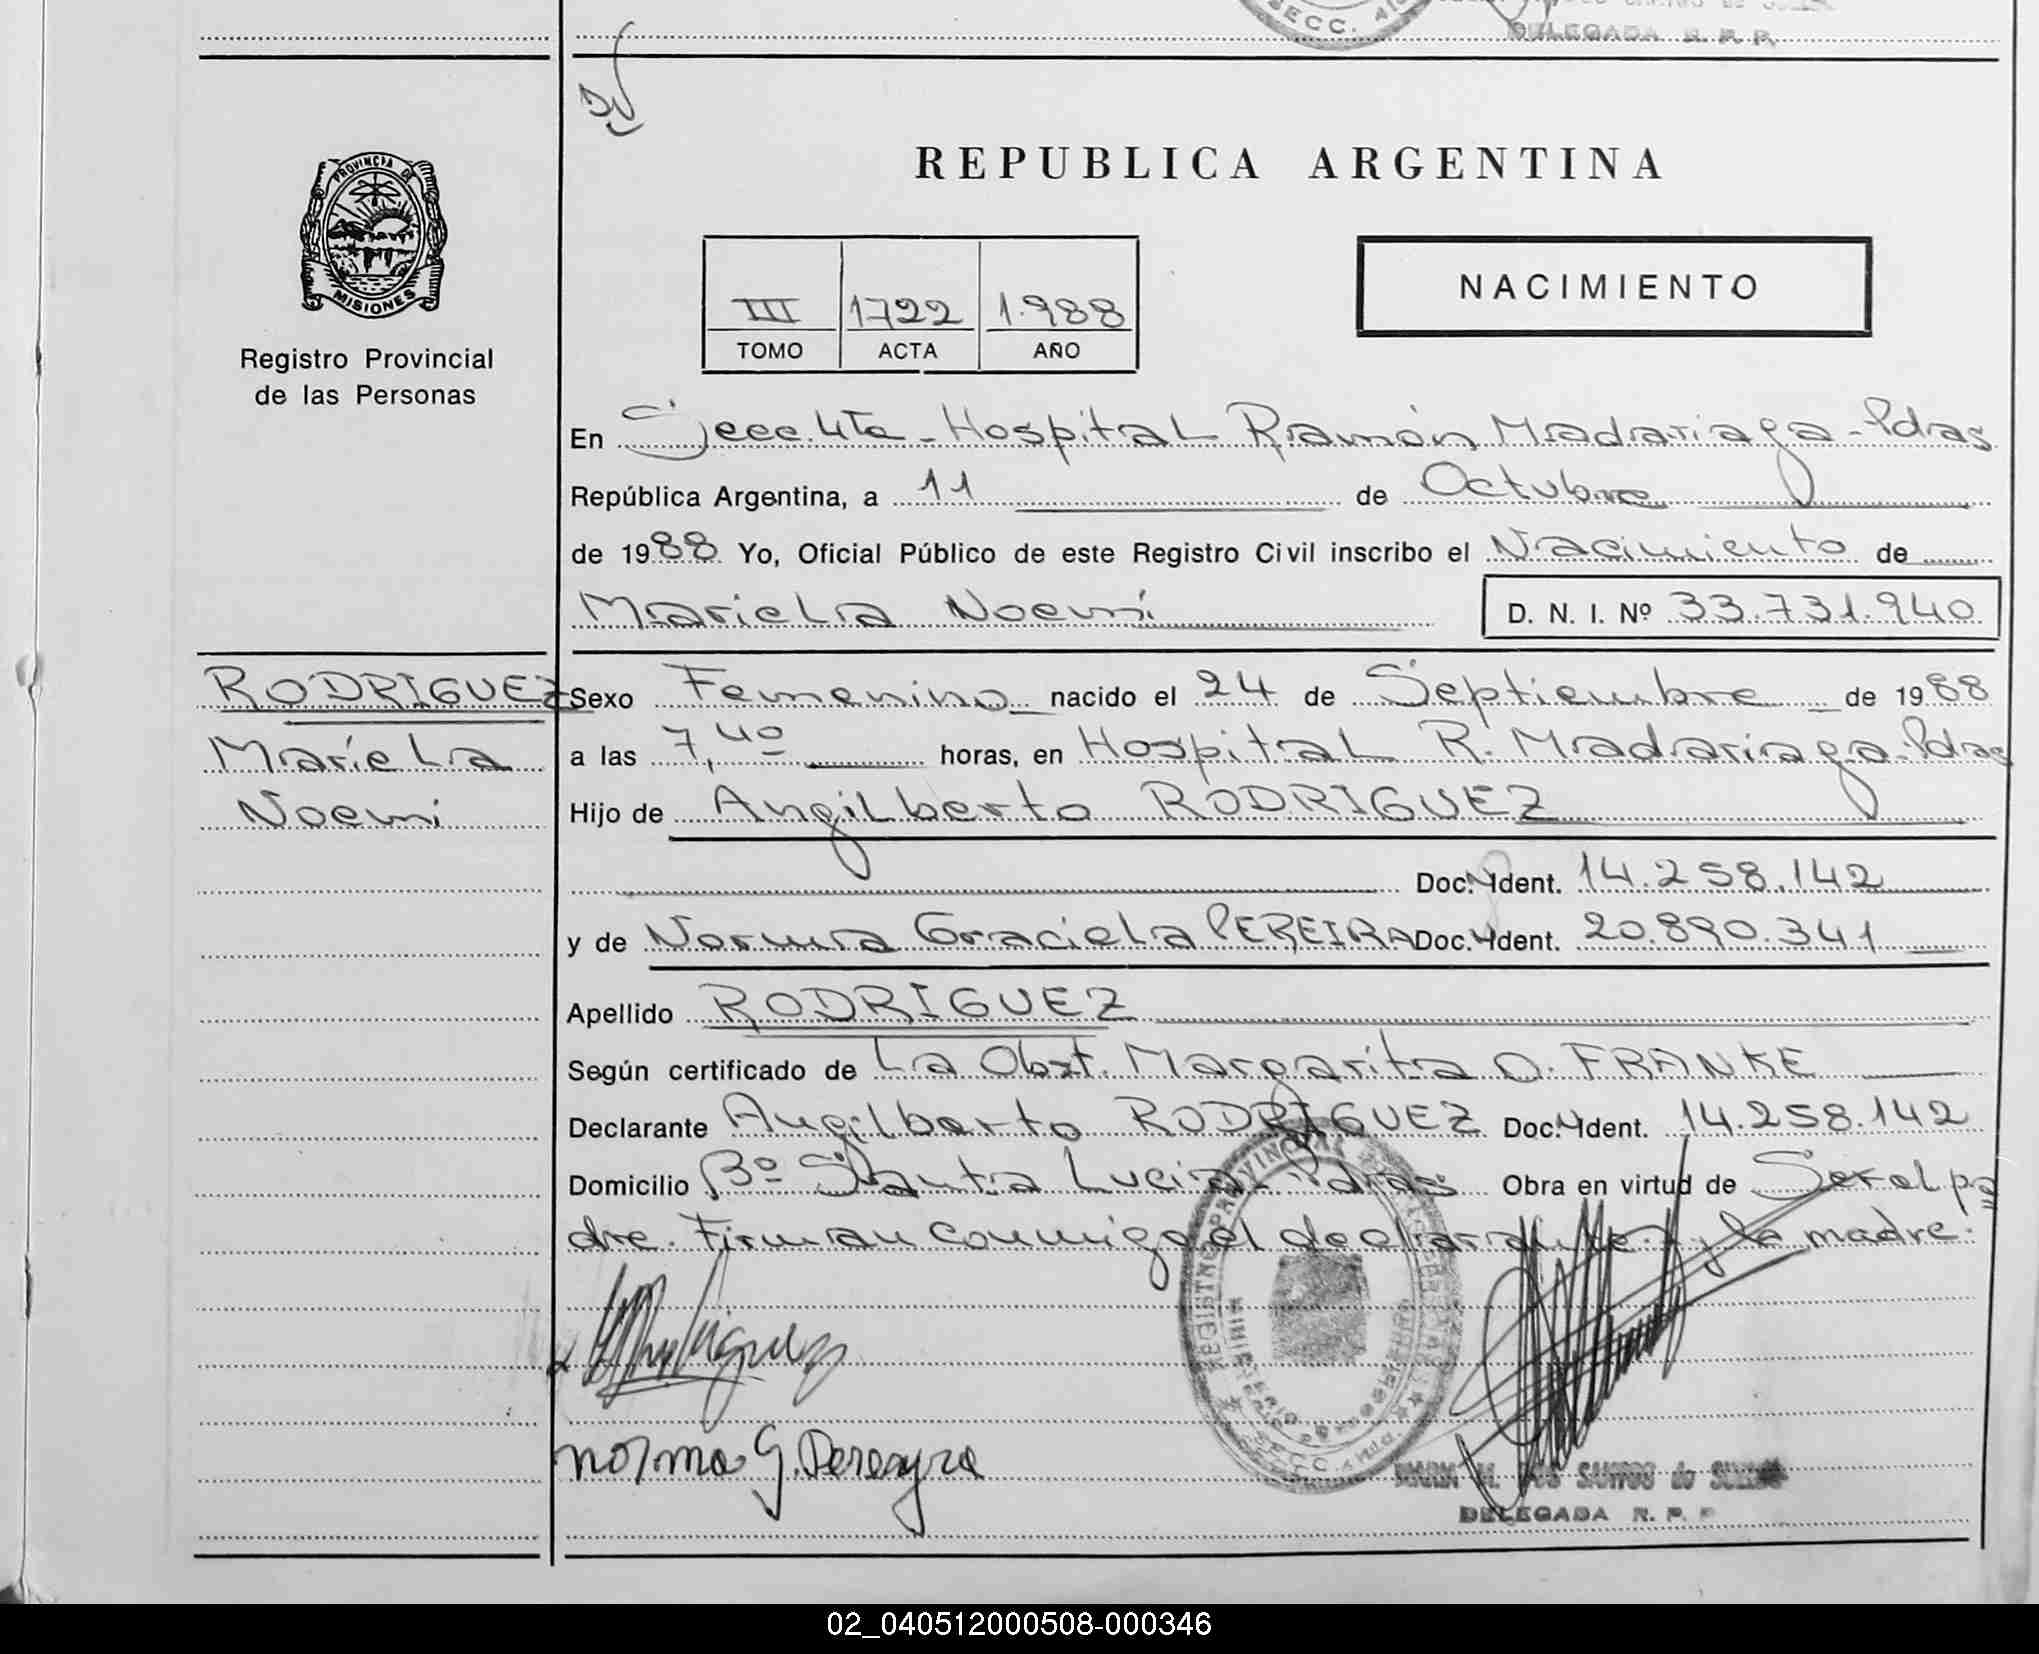 DELEGADA R. P. P.
REPUBLICA ARGENTINA
PROVINCIA DE
MISIONES
Registro Provincial
de las Personas
NACIMIENTO
III 1722 1.988
TOMO ACTA AÑO
En Secc. 4ta - Hospital Ramón Madariaga - Pdas
República Argentina, a 11 de Octubre
de 1988 Yo, Oficial Público de este Registro Civil inscribo el Nacimiento de
Mariela Noemí D. N. I. Nº 33.731.940
RODRIGUEZ
Mariela
Noemí
Sexo Femenino nacido el 24 de Septiembre de 1988
a las 7,40 horas, en Hospital R. Madariaga - Pdas
Hijo de Angilberto RODRIGUEZ
Doc. Ident. 14.258.142
y de Norma Graciela PEREIRA Doc. Ident. 20.890.341
Apellido RODRIGUEZ
Según certificado de La Obst. Margarita O. FRANKE
Declarante Angilberto RODRIGUEZ Doc. Ident. 14.258.142
Domicilio Bº Santa Lucia - Pdas Obra en virtud de Ser el pa
dre. Firman conmigo el declarante y la madre.
Norma G. Pereyra
DOS SANTOS de
DELEGADA R. P. P
02_040512000508-000346